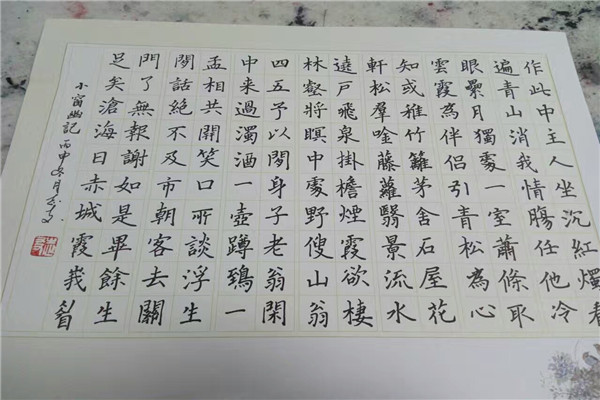 作此中主人坐沉紅燭看
遍青山消我情腸任他冷
眼纍月獨處一室蕭條取
雲霞為伴侶引青松為心
知或稚竹籬茅舍石屋花
軒松羣唫藤蘿翳景流水
遶戶飛泉掛檐煙霞欲棲
林壑將瞑中處野傁山翁
四五予以閒身子老翁閑
中来過濁酒一壺蹲鵄一
盂相共開笑口所談浮生
閒話絕不及市朝客去關
門了無報謝如是畢餘生
足矣滄海日赤城霞峩眉
小窗幽記 丙申冬月